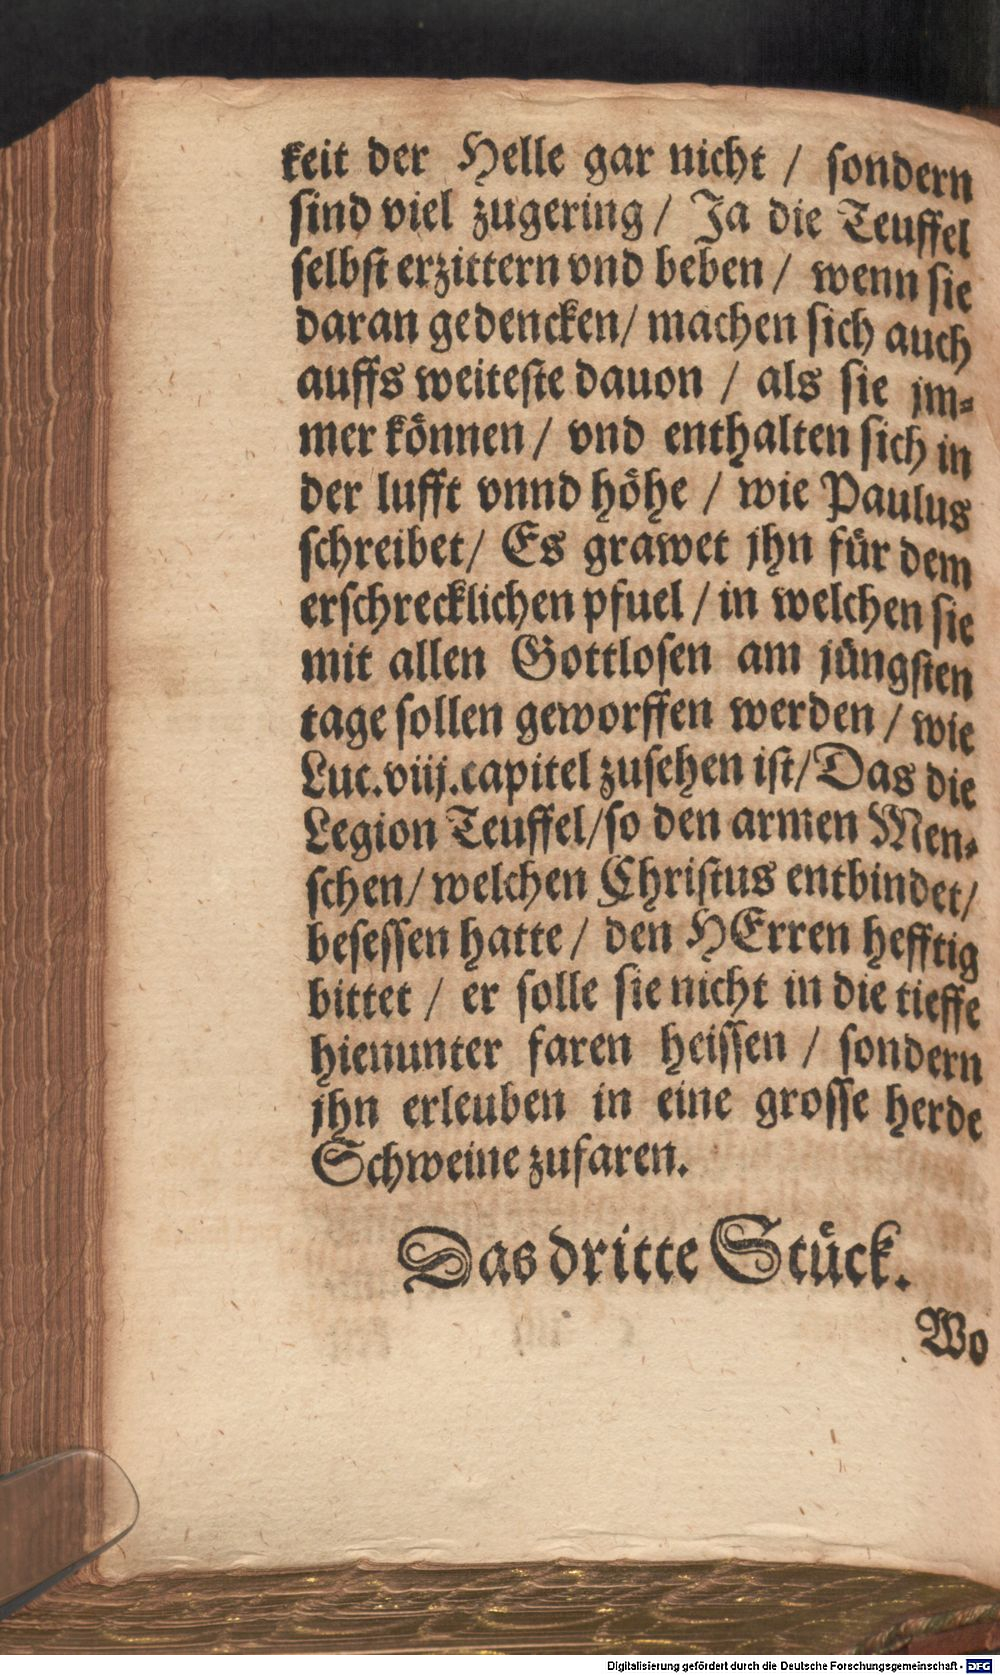 keit der Helle gar nicht / sondern
sind viel zugering / Ja die Teuffel
selbst erzittern vnd beben / wenn sie
daran gedencken / machen sich auch
auffs weiteste dauon / als sie jm-
mer können / vnd enthalten sich in
der lufft vnnd höhe / wie Paulus
schreibet / Es grawet jhn für dem
erschrecklichen pfuel / in welchen sie
mit allen Gottlosen am jüngsten
tage sollen geworffen werden / wie
Luc. viij. capitel zusehen ist / Das die
Legion Teuffel / so den armen Men-
schen / welchen Christus entbindet /
besessen hatte / den HErren hefftig
bittet / er solle sie nicht in die tieffe
hienunter faren heissen / sondern
jhn erleuben in eine grosse herde
Schweine zufaren.
Das dritte Stück.
Wo
Digitalisierung gefördert durch die Deutsche Forschungsgemeinschaft - DFG